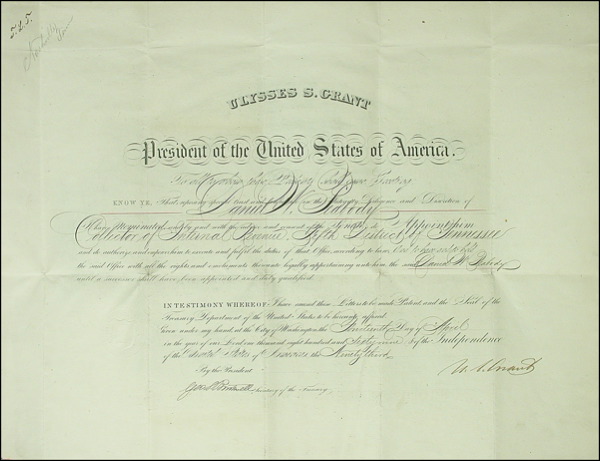 T. L. S.
Nashville
Tenn
ULYSSES S. GRANT
President of the United States of America.
To all who shall see these Presents, Greeting
KNOW YE, That reposing special trust and confidence in the Integrity, Diligence and Discretion of
Daniel W. Peabody
I have nominated, and by and with the advice and consent of the Senate, do Appoint him
Collector of Internal Revenue, Fifth District of Tennessee
and do authorize and empower him to execute and fulfil the duties of that Office according to law; And to have and to hold
the said Office with all the rights and emoluments thereunto legally appertaining unto him, the said Daniel W. Peabody
until a successor shall have been appointed and duly qualified.
IN TESTIMONY WHEREOF, I have caused these Letters to be made Patent, and the Seal of the
Treasury Department of the United States to be hereunto affixed.
Given under my hand, at the City of Washington the Day of April
in the year of our Lord one thousand eight hundred and sixty nine & of the Independence
of the United States of America the Ninety third
By the President:
U. S. Grant
Geo S Boutwell Secretary of the Treasury.